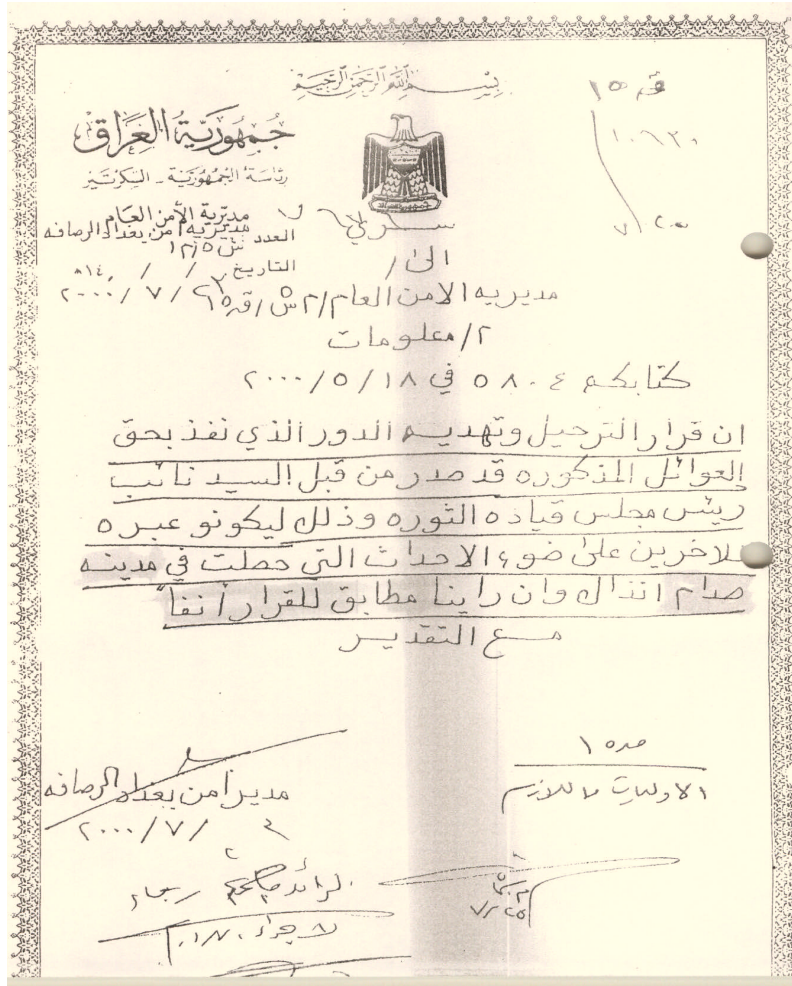 بسم الله الرحمن الرحيم
جمهورية العراق
رئاسة الجمهورية - السكرتير
مديرية الأمن العام
مديرية امن بغداد الرصافه
العدد ش٥/٢/
التاريخ / / ١٤٠هـ
٢٠٠٠/٧/
سري
الى/
مديريه الامن العام/م ش٥/ق١٥
م/معلومات
كتابكم ٥٨٠٤ في ٢٠٠٠/٥/١٨
ان قرار الترحيل وتهديم الدور الذي نفذ بحق
العوائل المذكوره قد صدر من قبل السيد نائب
ريئس مجلس قياده الثوره وذلك ليكونو عبره
للاخرين على ضوء الاحداث التي حصلت في مدينه
صدام انذاك وان راينا مطابق للقرار أنفاً
مع التقدير
مدير امن بغداد الرصافه
٢٠٠٠/٧/
ق ١٥
٧/٢٥
الرائد
٧/٢٥